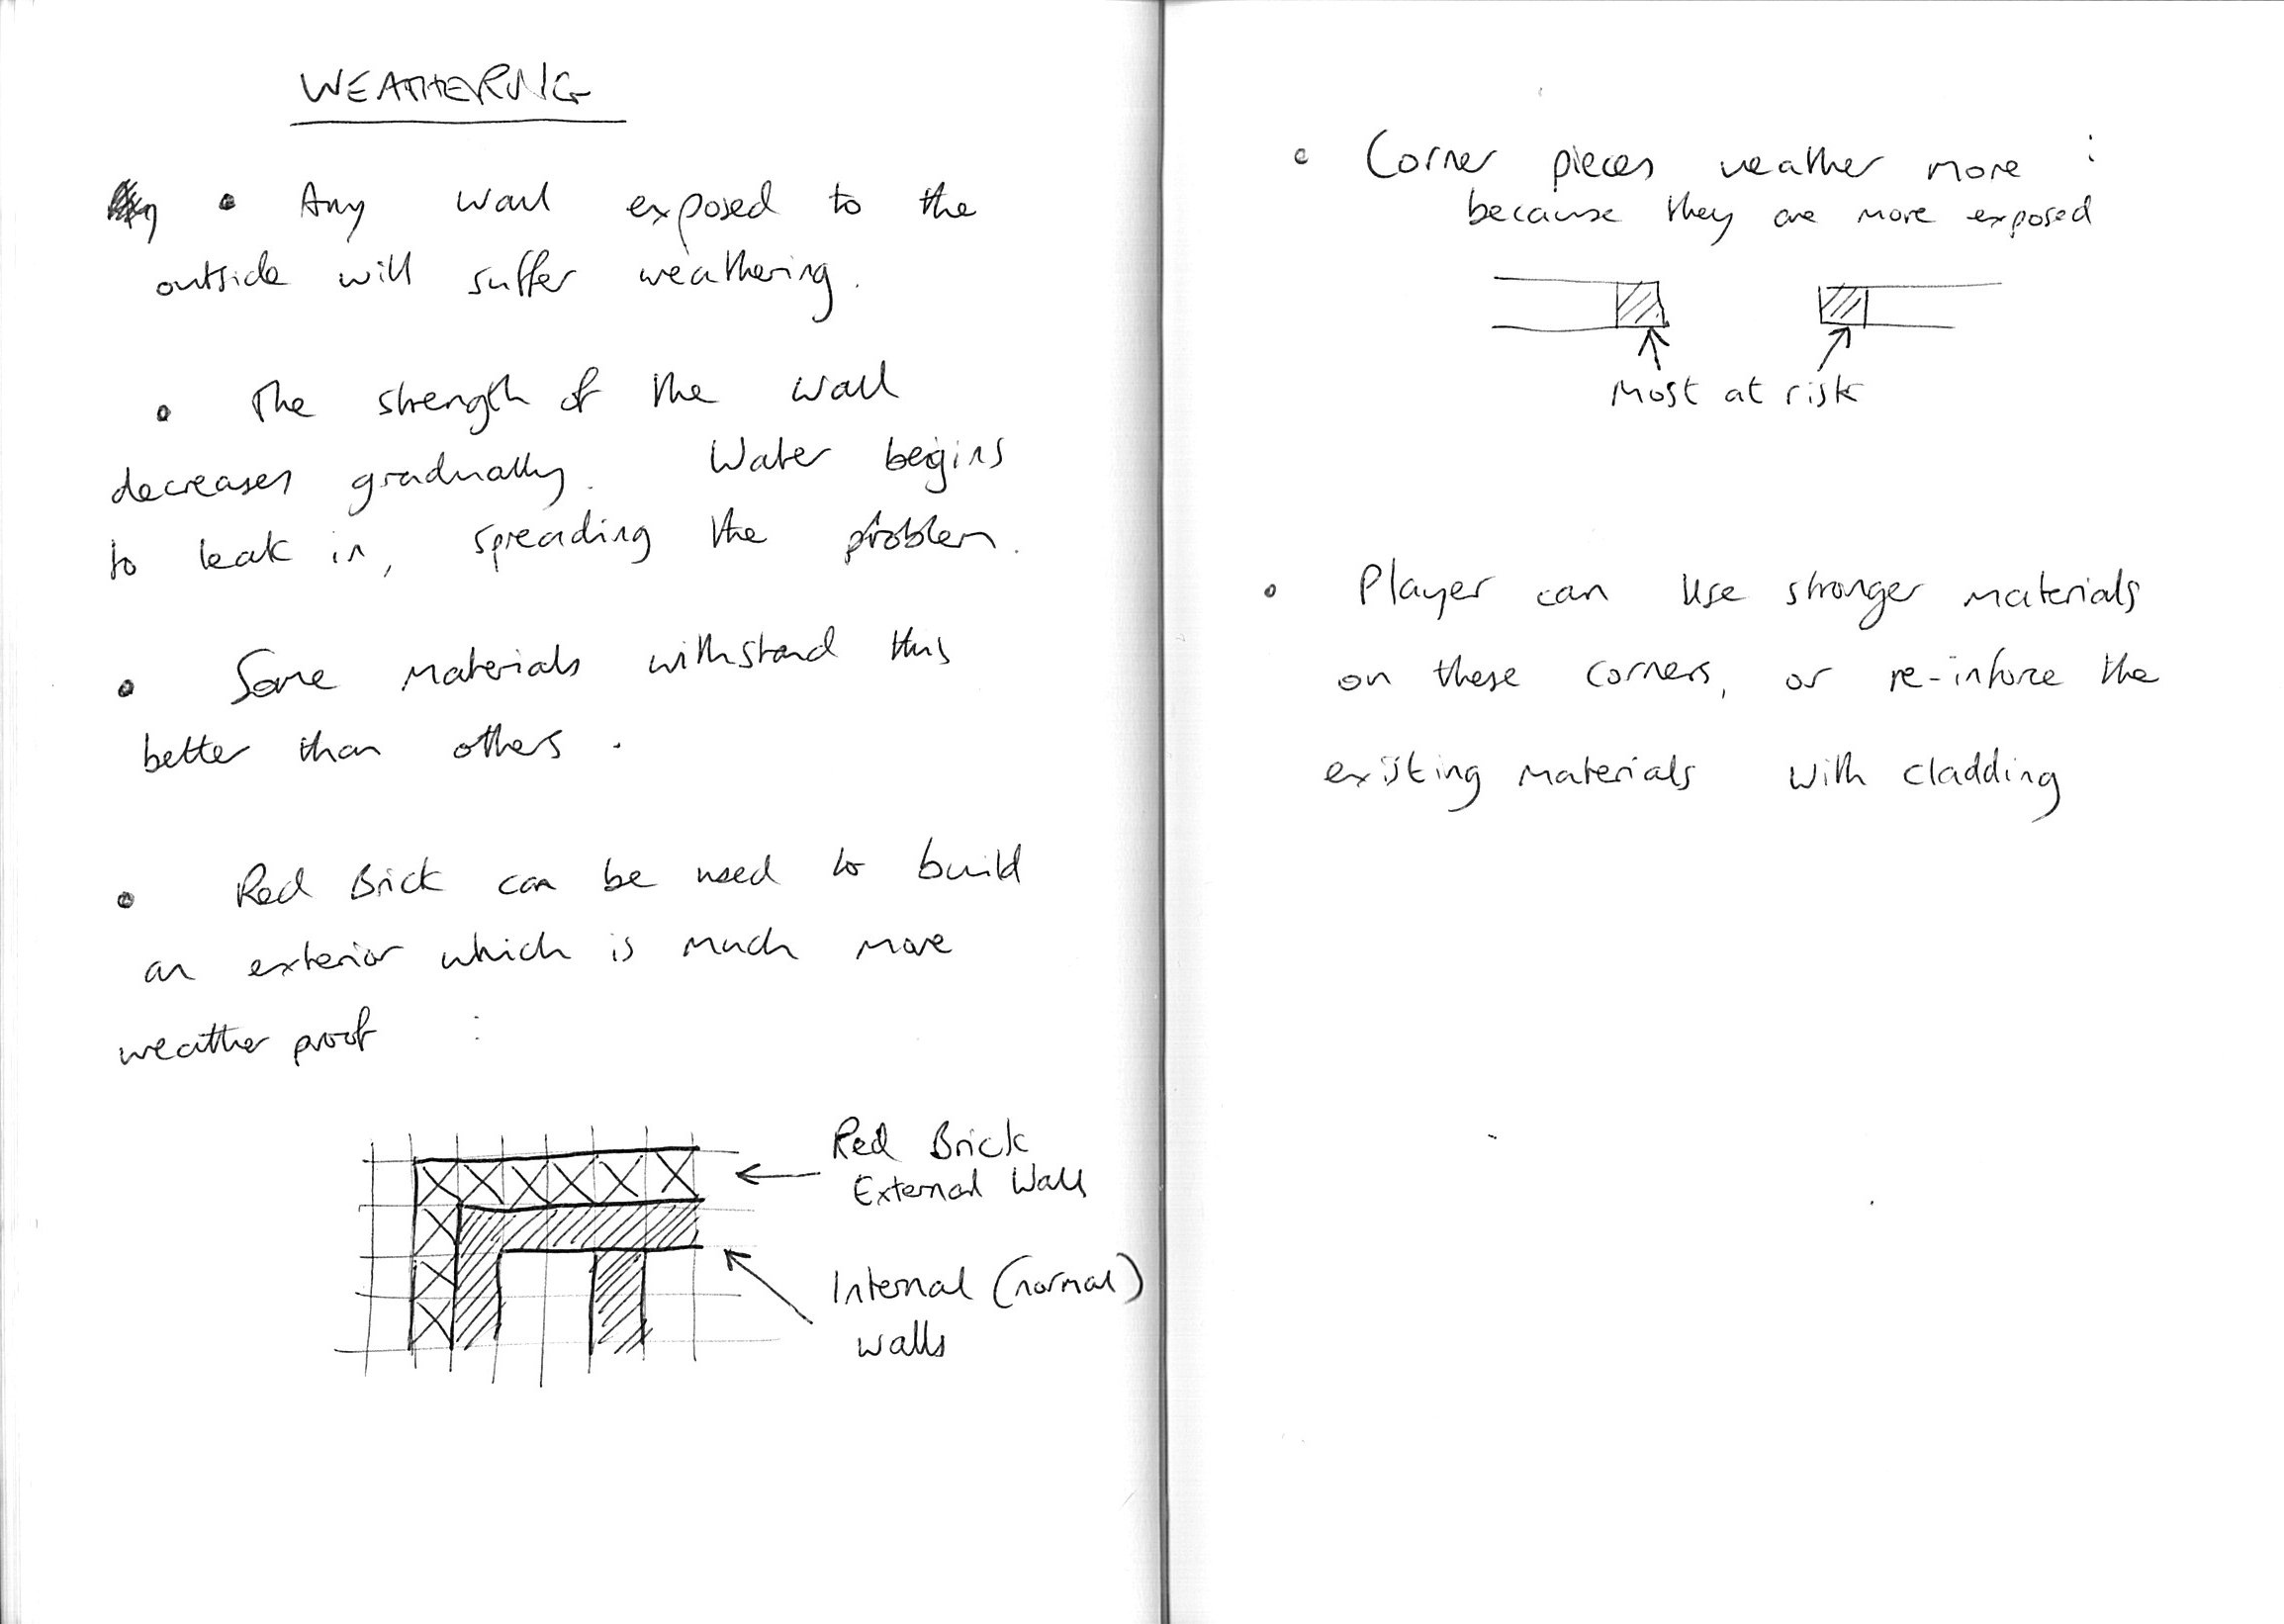 WEATHERING
• Any wall exposed to the
outside will suffer weathering.
• The strength of the wall
decreases gradually. Water begins
to leak in, spreading the problem.
• Some materials withstand this
better than others.
• Red Brick can be used to build
an exterior which is much more
weather proof :
Red Brick
External Walls
Internal (normal)
walls
• Corner pieces weather more :
because they are more exposed
Most at risk
• Player can use stronger materials
on these corners, or re-inforce the
existing materials with cladding